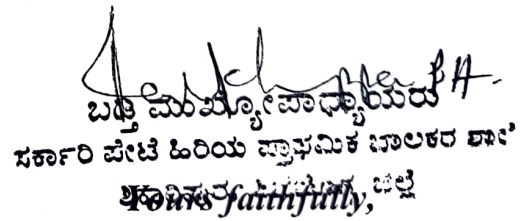 ಬಡ್ತಿ ಮುಖ್ಯೋಪಾಧ್ಯಾಯರು
ಸರ್ಕಾರಿ ಪೇಟೆ ಹಿರಿಯ ಪ್ರಾಥಮಿಕ ಬಾಲಕರ ಶಾಲೆ
Yours faithfully, ಜಿಲ್ಲೆ